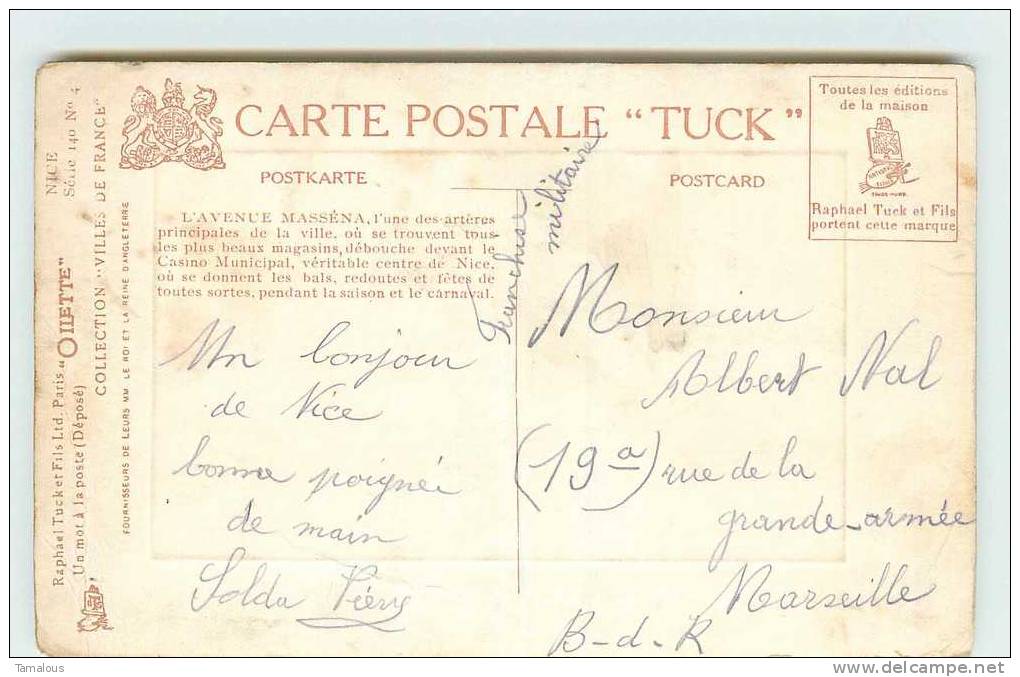 CARTE POSTALE "TUCK"
POSTKARTE
POSTCARD
Toutes les éditions
de la maison
Raphael Tuck et Fils
portent cette marque
NICE
Série 140 Nº 4
Raphael Tuck et Fils Ltd. Paris "OILETTE"
COLLECTION "VILLES DE FRANCE"
Un mot à la poste (Déposé)
FOURNISSEURS DE LEURS MM. LE ROI ET LA REINE D'ANGLETERRE
L'AVENUE MASSÉNA, l'une des artères
principales de la ville, où se trouvent tous
les plus beaux magasins, débouche devant le
Casino Municipal, véritable centre de Nice,
où se donnent les bals, redoutes et fêtes de
toutes sortes, pendant la saison et le carnaval.
Franchise
militaire
Un bonjour
de Nice
bonne poignée
de main
Solda
Monsieur
Albert Nal
(19 a) rue de la
grande-armée
Marseille
B-d-R
Tamalous
www.delcampe.net